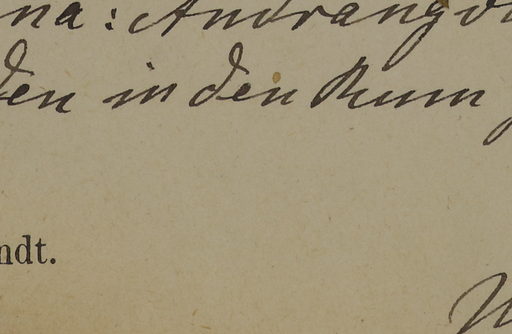 na: Andrang
den in den Rum
ndt.